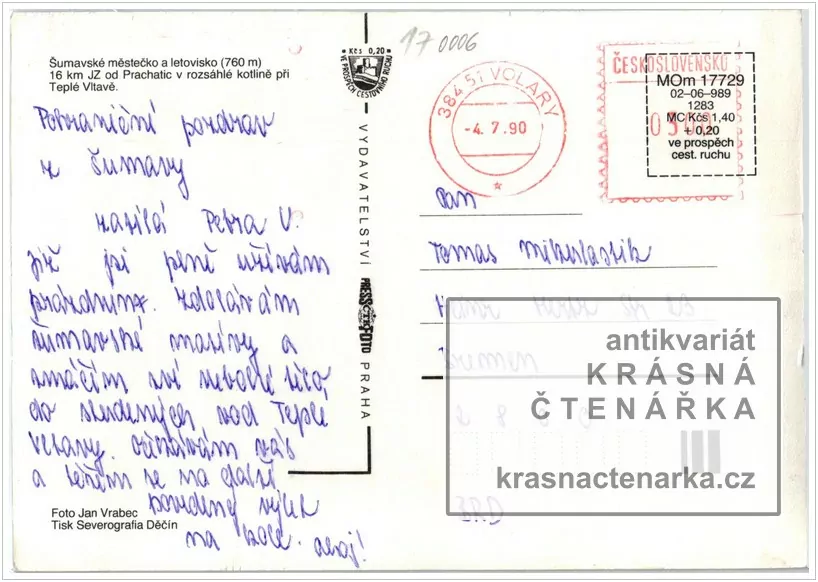 Šumavské městečko a letovisko (760 m)
16 km JZ od Prachatic v rozsáhlé kotlině při
Teplé Vltavě.
Kčs 0,20
VE PROSPĚCH CESTOVNÍHO RUCHU
17 0006
38451 VOLARY
-4. 7. 90
ČESKOSLOVENSKO
MOm 17729
02–06–989
1283
MC Kčs 1,40
+ 0,20
ve prospěch
cest. ruchu
VYDAVATELSTVÍ PRESSFOTO PRAHA
pozdrav
z Šumavy
zasílá Petra V.
Již si plně užívám
prázdnin. Zdolávám
šumavské masivy a
smáčím své tělo
do studených vod Teplé
Vltavy. vás
a těším se na další
výlet
na kole. ahoj!
Foto Jan Vrabec
Tisk Severografia Děčín
Pan
Tomas
antikvariát
KRÁSNÁ
ČTENÁŘKA
krasnactenarka.cz
BRD